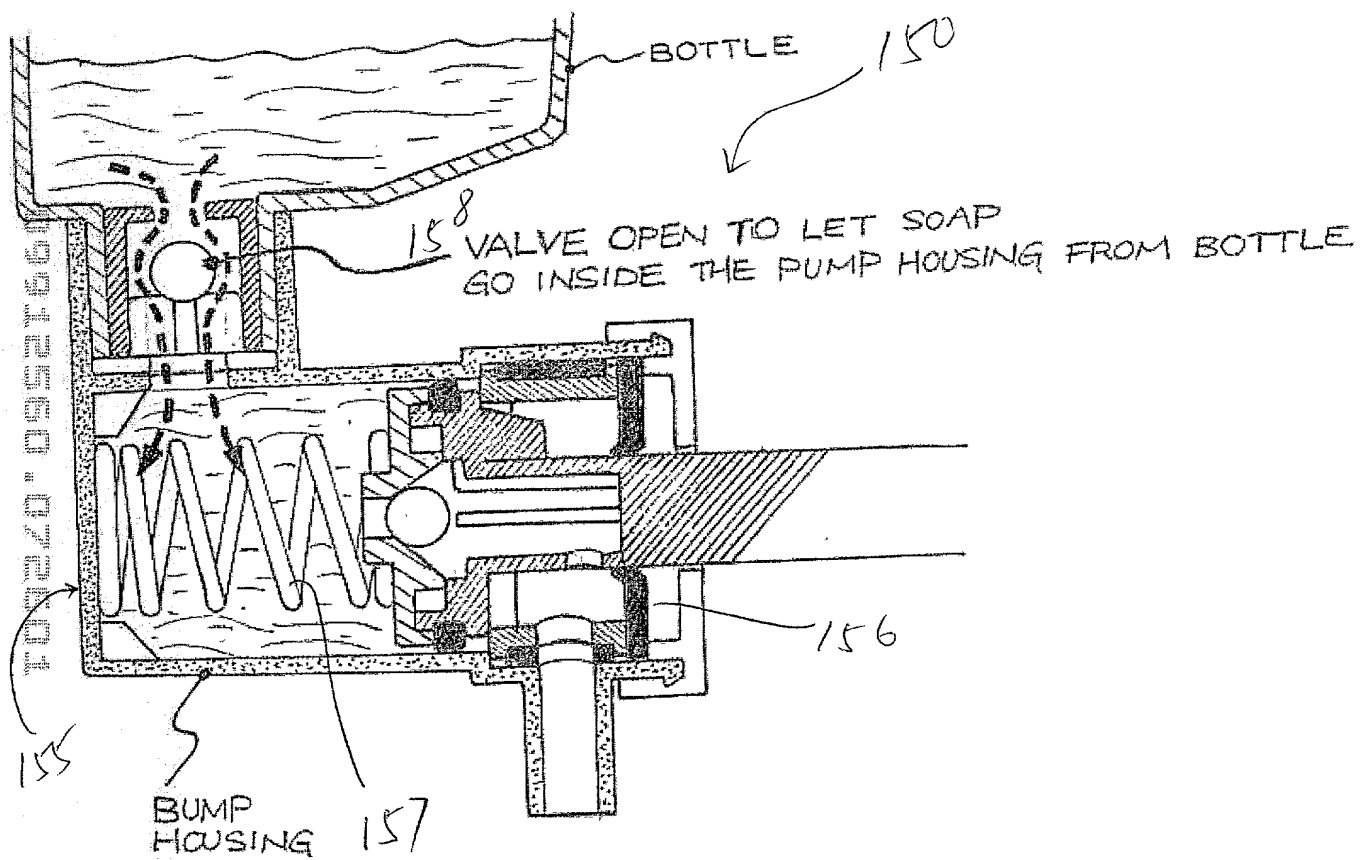 BOTTLE
150
158
VALVE OPEN TO LET SOAP
GO INSIDE THE PUMP HOUSING FROM BOTTLE
109270.0952160
156
155
BUMP
HOUSING
157